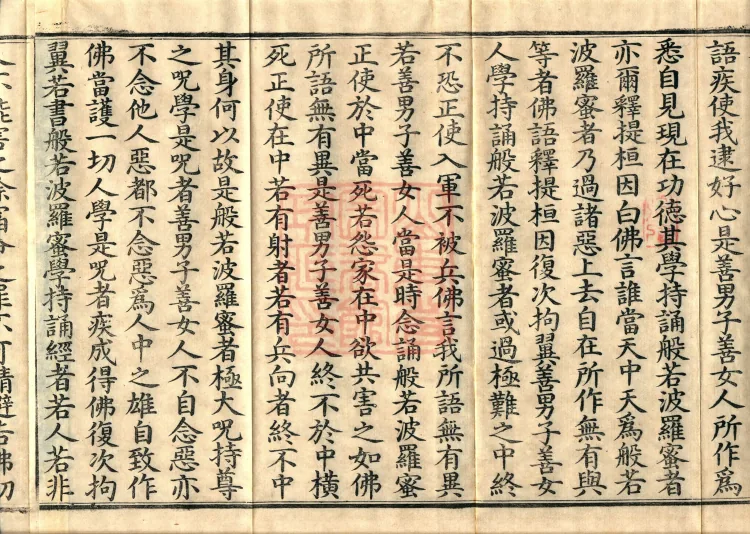 語疾使我逮好心是善男子善女人所作爲
悉自見現在功德其學持誦般若波羅蜜者
亦爾釋提桓因白佛言誰當天中天爲般若
波羅蜜者乃過諸惡上去自在所作無有與
等者佛語釋提桓因復次拘翼善男子善女
人學持誦般若波羅蜜者或過極難之中終
不恐正使入軍不被兵佛言我所語無有異
若善男子善女人當是時念誦般若波羅蜜
正使於中當死若怨家在中欲共害之如佛
所語無有異是善男子善女人終不於中橫
死正使在中若有射者若有兵向者終不中
其身何以故是般若波羅蜜者極大呪持尊
之呪學是呪者善男子善女人不自念惡亦
不念他人惡都不念惡爲人中之雄自致作
佛當護一切人學是呪者疾成得佛復次拘
翼若書般若波羅蜜學持誦經者若人若非